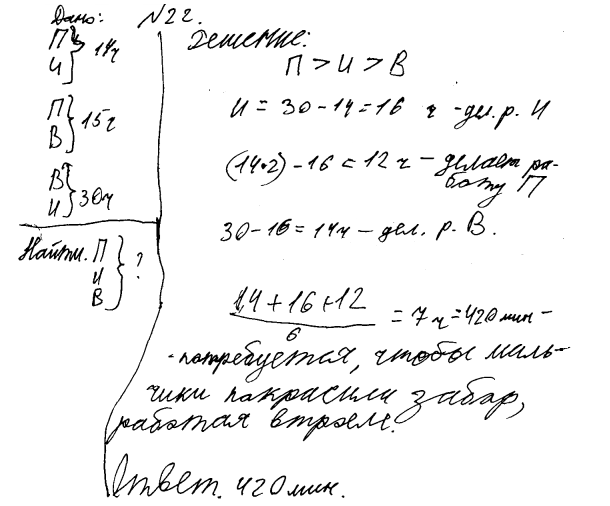 Дано: №22.
П
И } 14ч
П
В } 15ч
В
И } 30ч
Найти. П
И
В } ?
Решение:
П > И > В
И = 30 - 14 = 16 ч - дел. р. И
(14•2) - 16 = 12 ч - делает ра-
боту П
30 - 16 = 14ч - дел. р. В.
14 + 16 + 12
6
= 7 ч = 420 мин -
- потребуется, чтобы маль-
чики покрасили забор,
работая втроем.
Ответ. 420 мин.